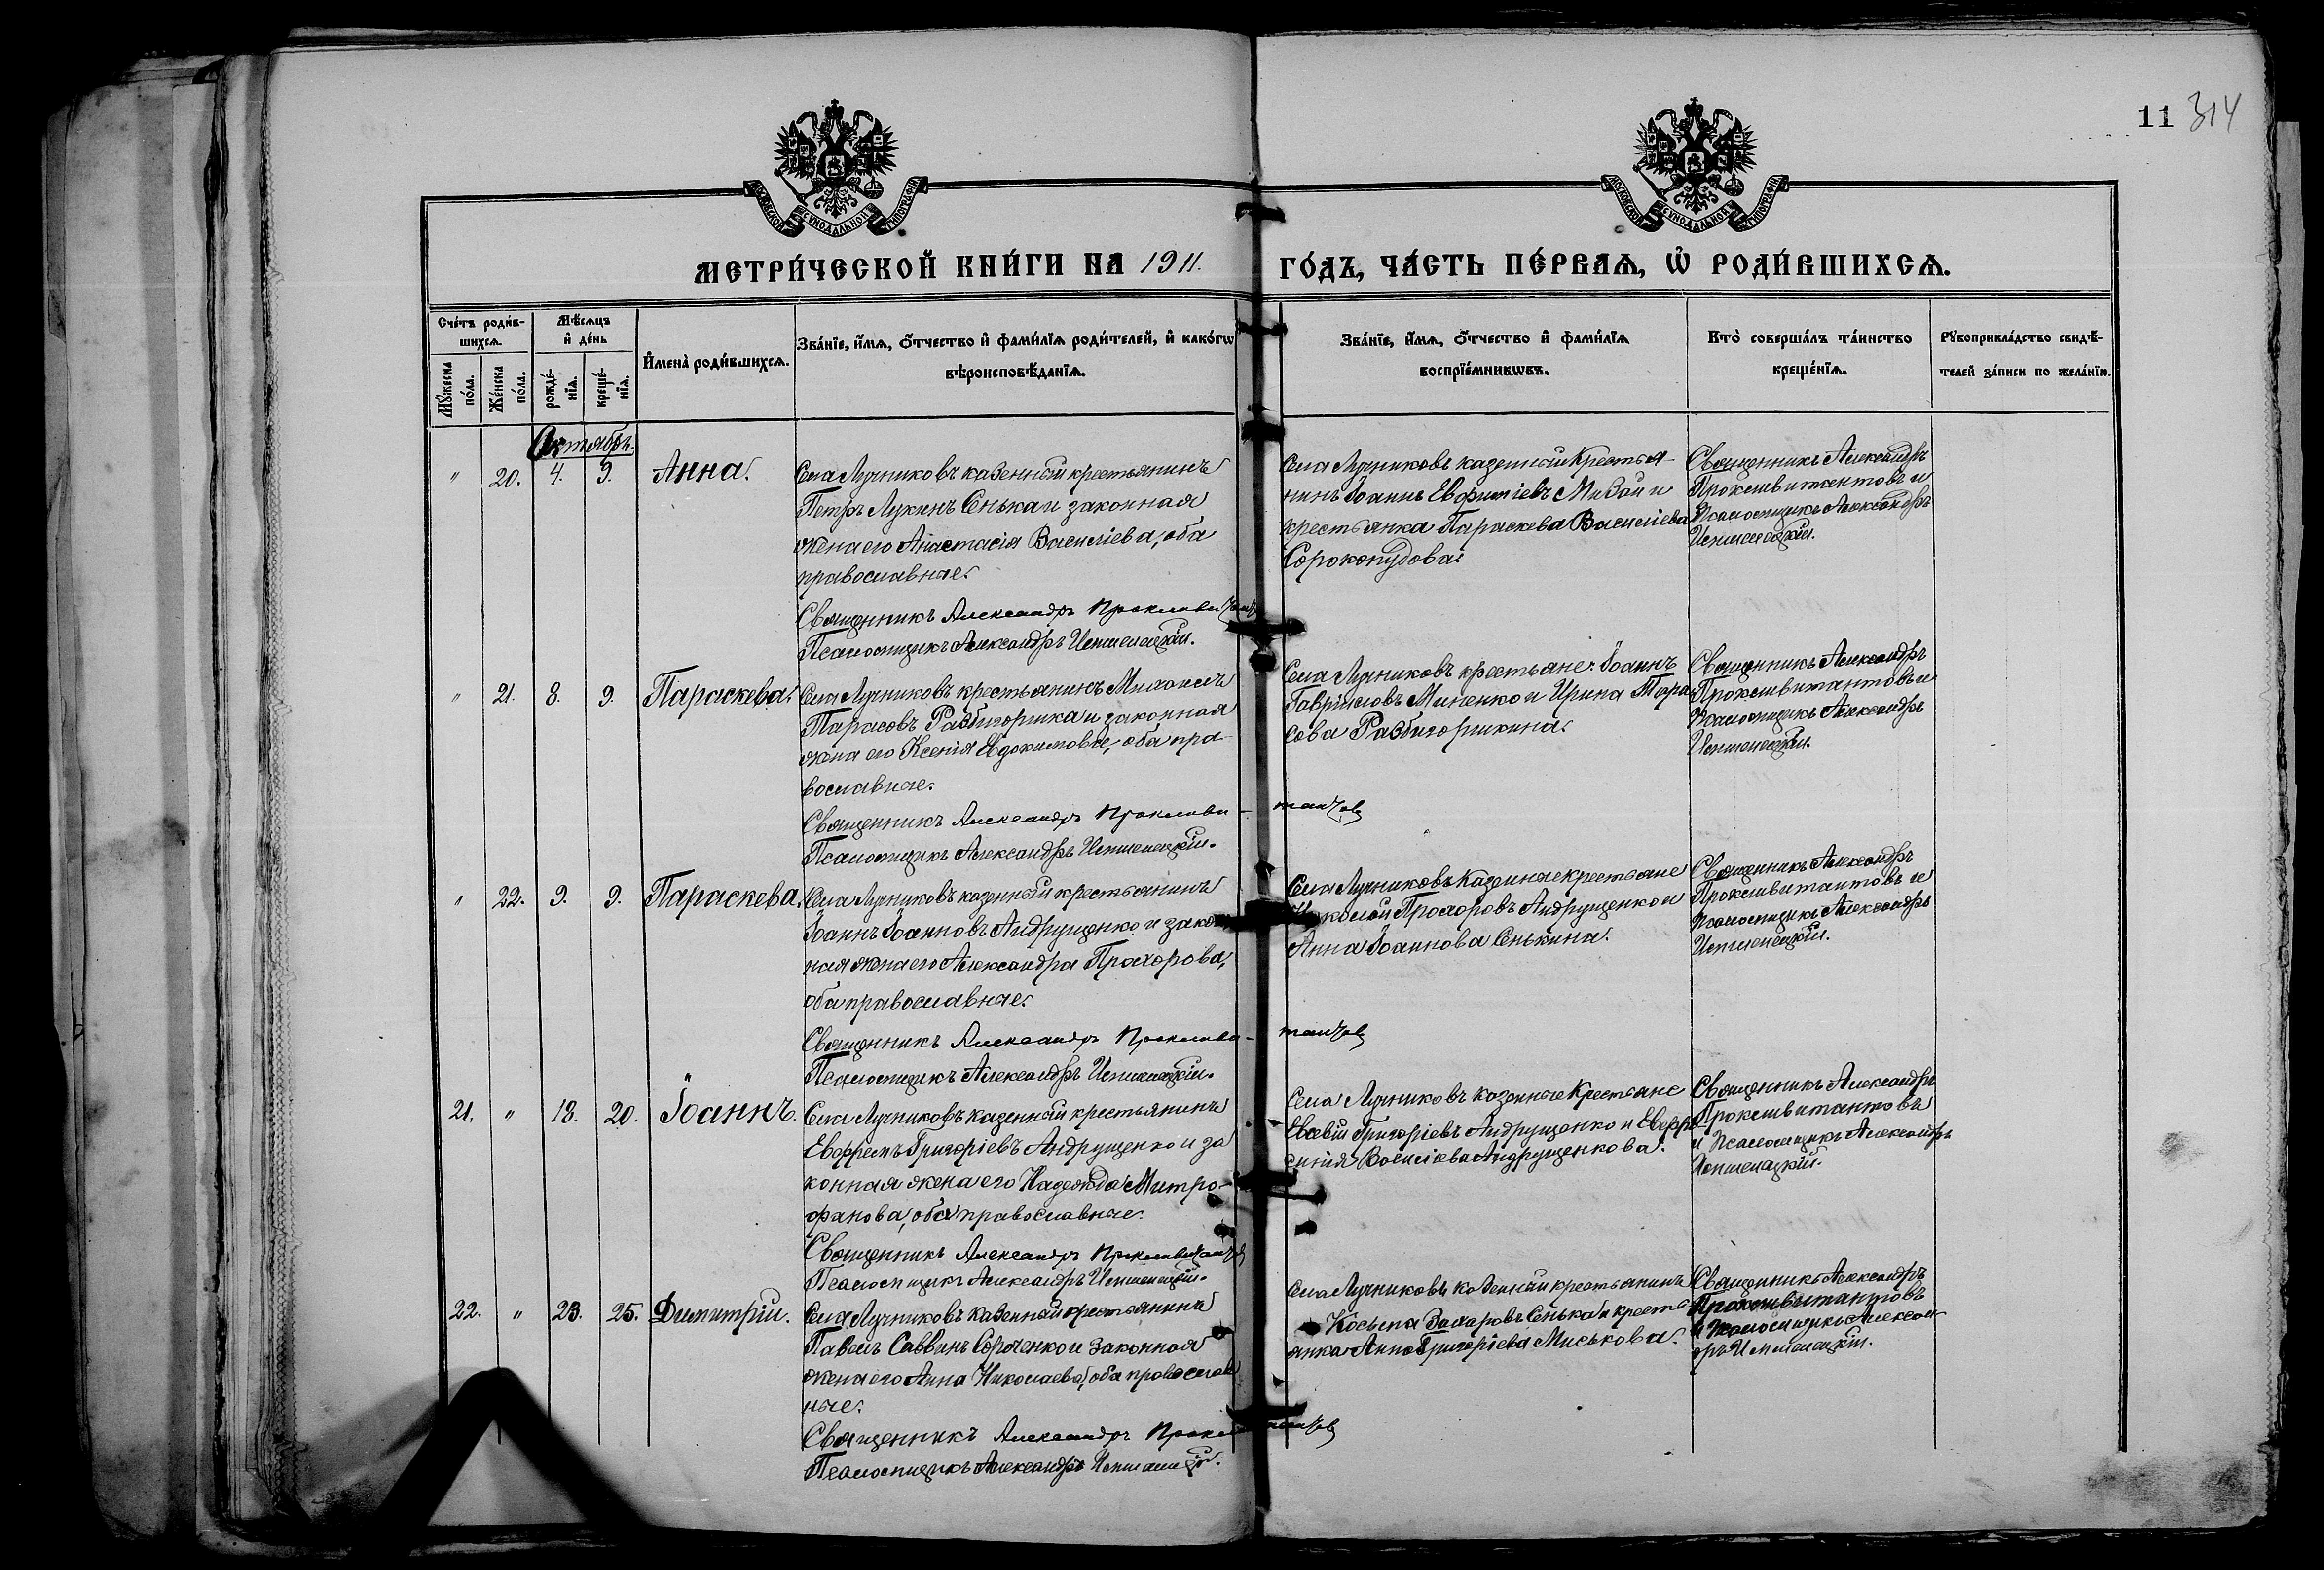 11 314
МОСКОВСКОЙ СУНОДАЛЬНОЙ ТИПОГРАФІИ
МОСКОВСКОЙ СУНОДАЛЬНОЙ ТИПОГРАФІИ
МЕТРИ́ЧЕСКОЙ КНИ́ГИ НА 1911. ГО́ДЪ, ЧА́СТЬ ПЕ́РВАЯ, Ѡ҆ РОДИ́ВШИХСЯ.
Сче́тъ роди́в-
шихся.
Мѣ́сяцъ
и҆ де́нь
Мꙋ́жеска по́ла.
Же́нска по́ла.
рожде́-
нїя.
креще́-
нїя.
И҆мена̀ роди́вшихся.
Зва́нїе, и҆́мя, ѻ҆́тчество и҆ фами́лїя роди́телей, и҆ како́гѡ
вѣроисповѣ́данїя.
Зва́нїе, и҆́мя, ѻ҆́тчество и҆ фами́лїя
воспрїе́мникѡвъ.
Кто̀ соверша́лъ та́инство
креще́нїя.
Рꙋкоприкла́дство свидѣ́-
телей за́писи по жела́нїю.
Октябрь.
" 20. 4. 9. Анна.
Села Лучниковъ казенный крестьянинъ
Петръ Лукинъ Сенька и законная
жена его Анастасія Василіева, оба
православные.
Священникъ Александръ
Псаломщикъ Александръ
Села Лучниковъ казенный крестья-
нинъ Іоаннъ Евфиміевъ Мизай и
крестьянка Параскева Василіева
Сорокопудова.
Священникъ Александръ
и
Псаломщикъ Александръ
" 21. 8. 9. Параскева.
Села Лучниковъ крестьянинъ Михаилъ
Тарасовъ Разбигоришка и законная
жена его Ксенія Евдокимова, оба пра-
вославные.
Священникъ Александръ
Псаломщикъ Александръ
Села Лучниковъ крестьяне: Іоаннъ
Гавріиловъ Миненко и Ирина Тара-
сова Разбигоришкина.
Священникъ Александръ
и
Псаломщикъ Александръ
" 22. 9. 9. Параскева.
Села Лучниковъ казенный крестьянинъ
Іоаннъ Іоанновъ Андрущенко и закон
ная жена его Александра Прохорова,
оба православные.
Священникъ Александръ
Псаломщикъ Александръ
Села Лучниковъ казенные крестьяне
Николай Прохоровъ Андрущенко и
Анна Іоаннова Сенькина.
Священникъ Александръ
и
Псаломщикъ Александръ
21. " 18. 20. Іоаннъ.
Села Лучниковъ казенный крестьянинъ
Ефремъ Григоріевъ Андрущенко и за
конная жена его Надежда Митро-
фанова, оба православные.
Священникъ Александръ
Псаломщикъ Александръ
Села Лучниковъ казенные крестьяне
Евсевій Григоріевъ Андрущенко и Евфро
синія Василіева Андрущенкова.
Священникъ Александръ
и Псаломщикъ Александръ
22. " 23. 25. Димитрій.
Села Лучниковъ казенный крестьянинъ
Павелъ Саввинъ и законная
жена его Анна Николаева, оба православ
ные.
Священникъ Александръ
Псаломщикъ Александръ
Села Лучниковъ казенный крестьянинъ
Косьма Захаровъ Сенька и кресть
янка Анна Григоріева Миськова.
Священникъ Александръ
и Псаломщикъ Алексан
дръ